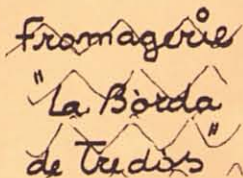 fromagerie
"La Bòrda
de Tredòs"